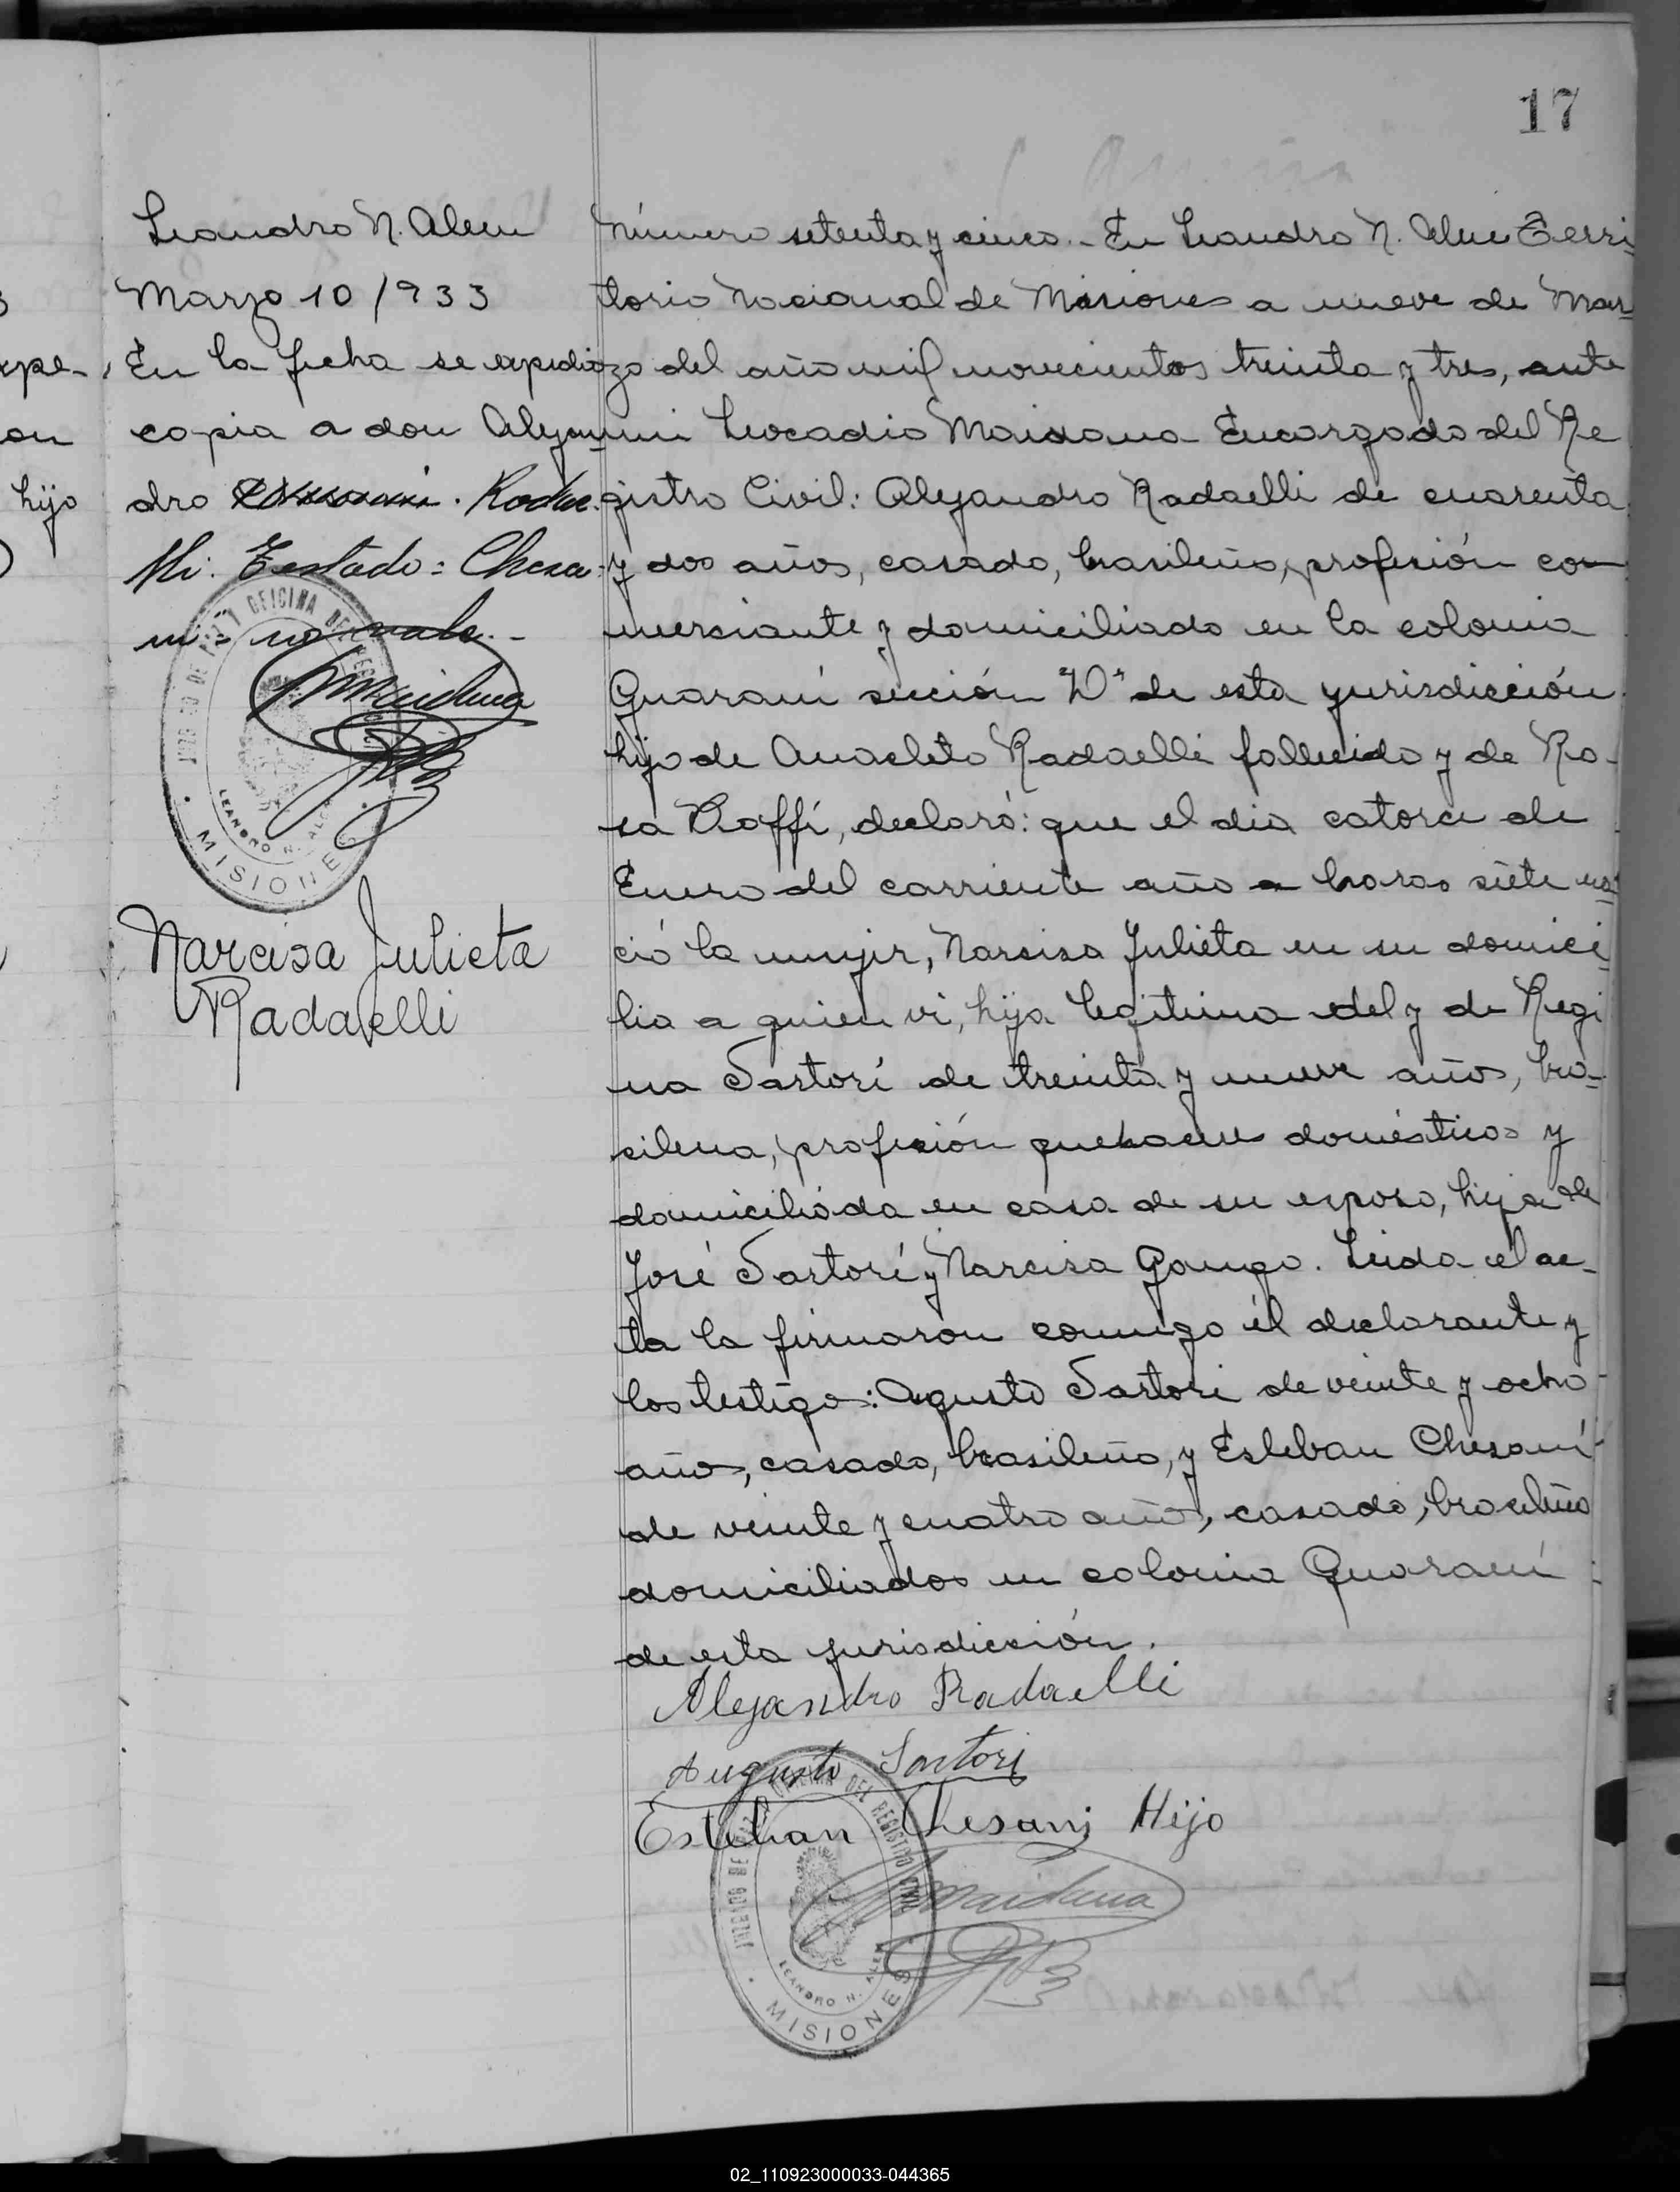 17
Leandro N. Alem
Marzo 10/933
En la fecha se expidió
copia a don Alejan-
dro Chesani. Radae-
lli. Testado: Chesa-
ni = no vale.-
JUZGADO DE PAZ Y OFICINA DEL REGISTRO CIVIL
LEANDRO N. ALEM
MISIONES
Narcisa Julieta
Radaelli
Número setenta y cinco.- En Leandro N. Alem Terri-
torio Nacional de Misiones a nueve de Mar-
zo del año mil novecientos treinta y tres, ante
mi Leocadio Maidana Encargado del Re
gistro Civil: Alejandro Radaelli de cuarenta
y dos años, casado, brasileño, profesión co-
merciante y domiciliado en la colonia
Guaraní sección "D" de esta jurisdicción
hijo de Anacleto Radaelli fallecido y de Ro-
sa Roffí, declaró: que el dia catorce de
Enero del corriente año a horas siete na-
ció la mujer, Narcisa Julieta en su domici-
lio a quien vi, hija legitima del y de Regi
na Sartorí de treinta y nueve años, bra-
silena, profesión quehaceres domésticos y
domiciliada en casa de su esposo, hija de
José Sartorí y Narcisa Gongo. Leida el ac-
ta la firmaron conmigo él declarante y
los testigos: Agusto Sartori de veinte y ocho
años, casado, brasileño, y Esteban Chesaní
de veinte y cuatro años, casado, brasileño
domiciliados en colonia Guaraní
de esta jurisdicción.
Alejandro Radaelli
Augusto Sartori
Esteban Chesani Hijo
Maidana
JUZGADO DE PAZ Y OFICINA DEL REGISTRO CIVIL
LEANDRO N. ALEM
MISIONES
xpe-
on
hijo
02_110923000033-044365